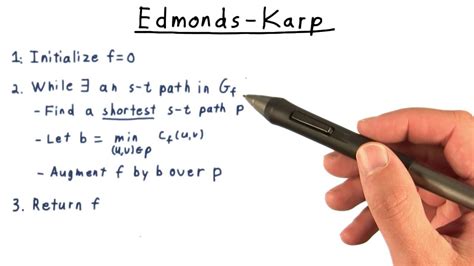 Edmonds-Karp
1: Initialize f=0
2. While ∃ an s-t path in Gf
- Find a shortest s-t path p
- Let b = min cf(u,v)
(u,v)∈p
- Augment f by b over p
3. Return f